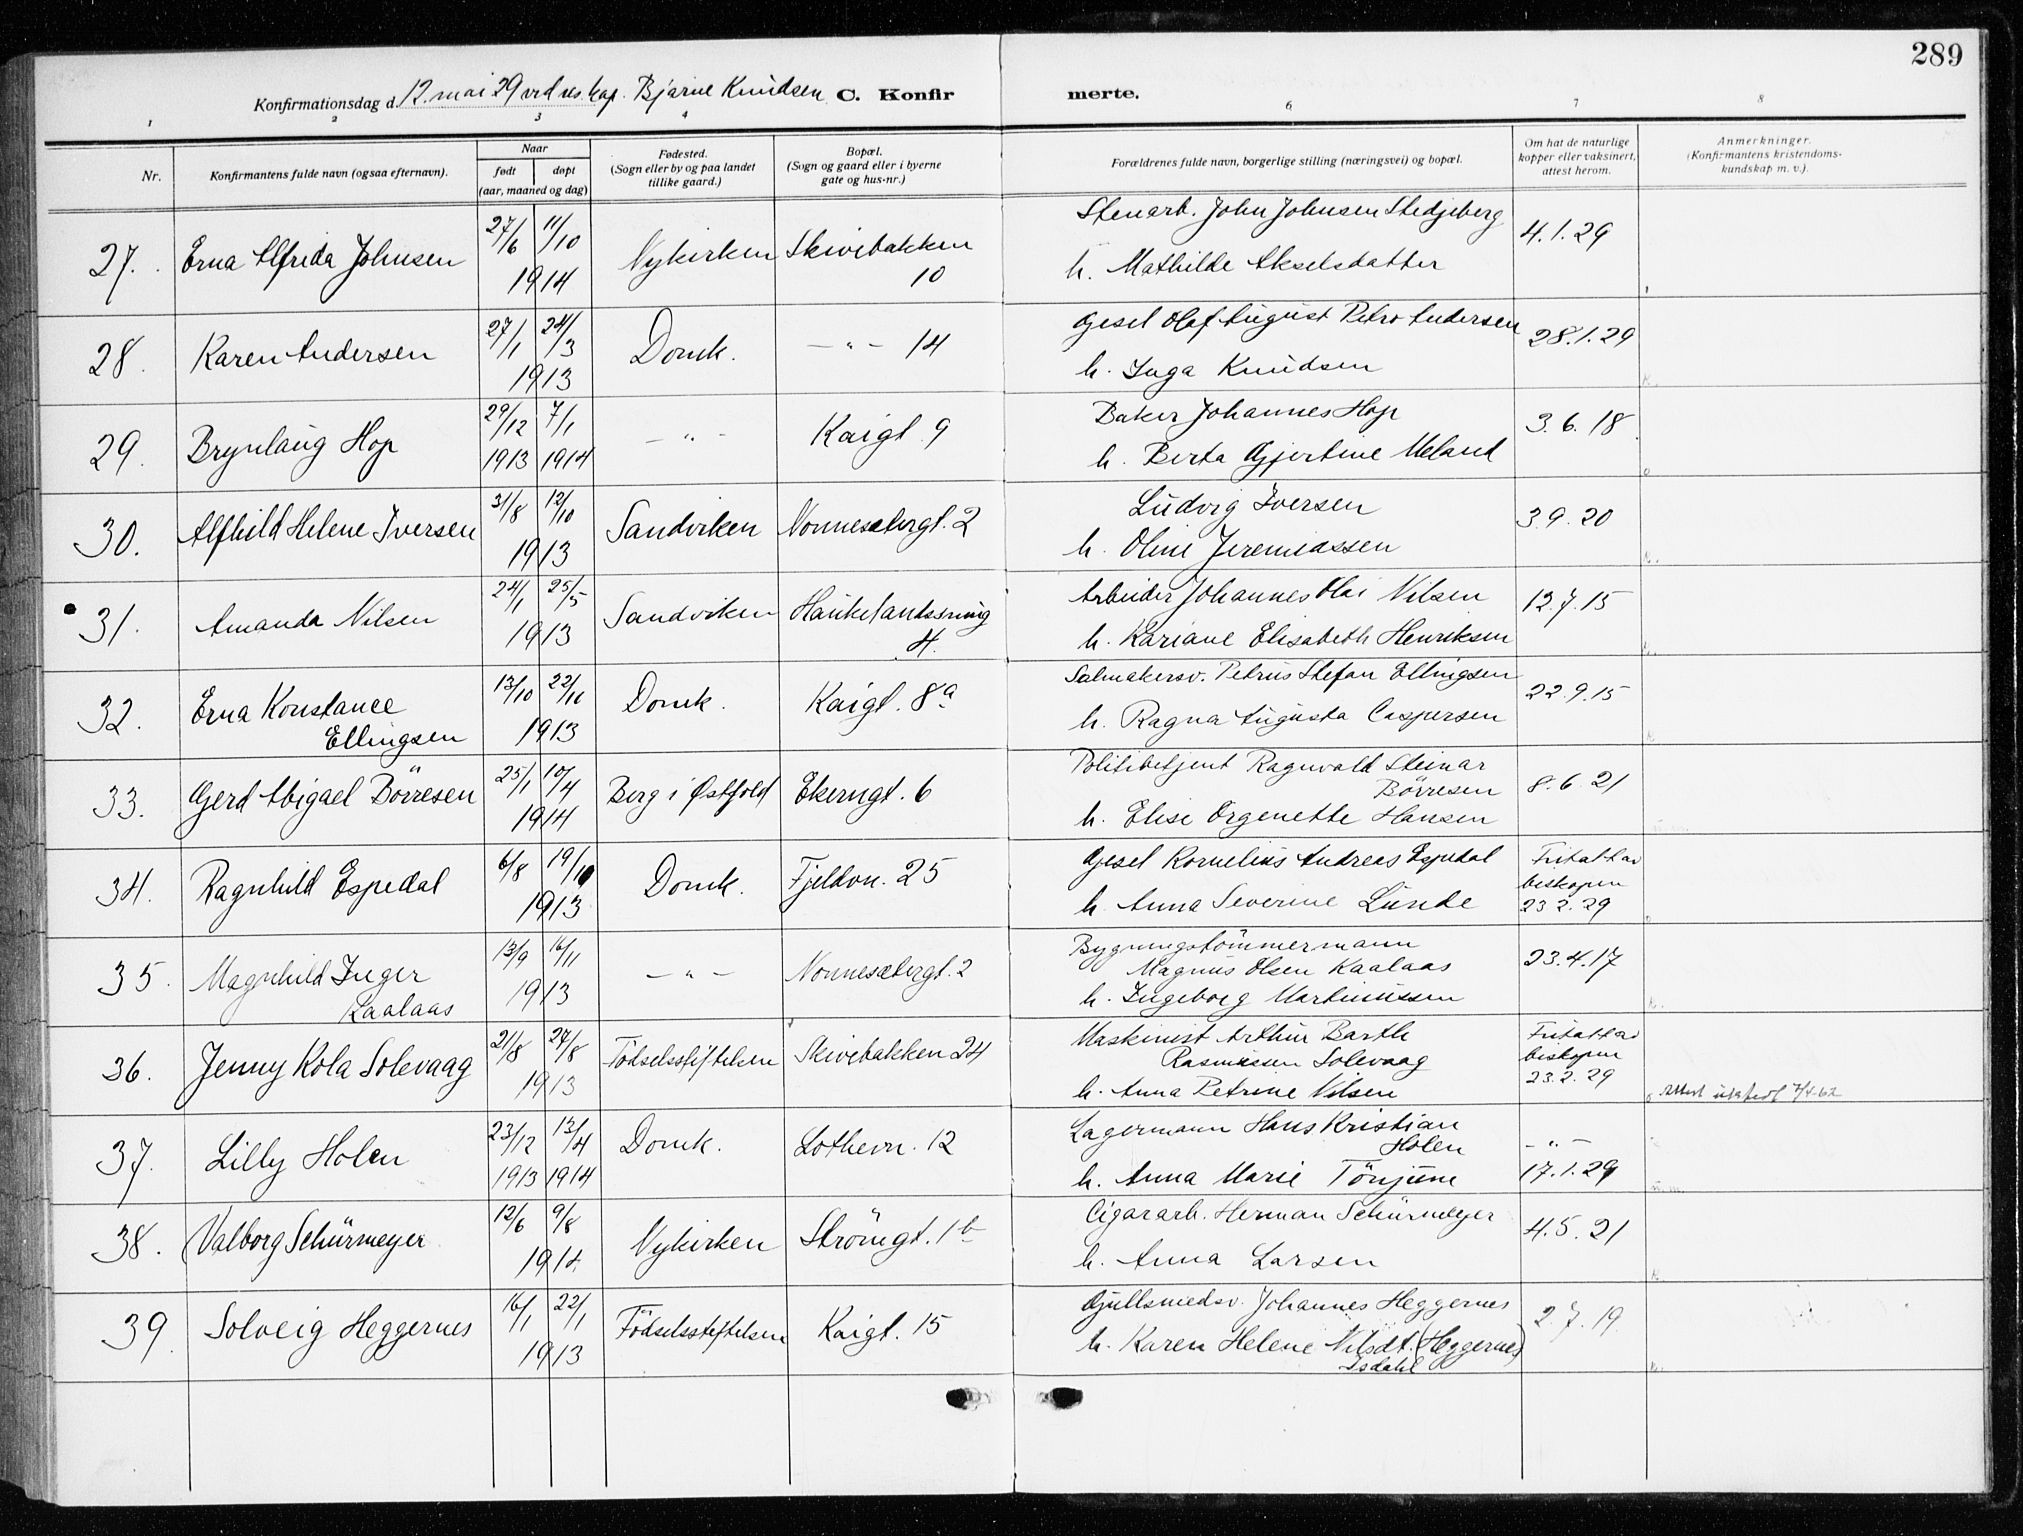 289
Konfirmationsdag d. 12. mai 29 ved res. kap. Bjarne Knudsen C. Konfir merte.
1 2 3 4 6 7 8
Nr. Konfirmantens fulde navn (ogsaa efternavn). Naar født døpt (aar, maaned og dag) Fødested. (Sogn eller by og paa landet tillike gaard.) Bopæl. (Sogn og gaard eller i byerne gate og hus-nr.) Forældrenes fulde navn, borgerlige stilling (næringsvei) og bopæl. Om hat de naturlige kopper eller vaksinert, attest herom. Anmerkninger. (Konfirmantens kristendoms-kundskap m. v.).
27. Erna Alfrida Johnsen 27/6 11/10 1914 Nykirken Skivebakken 10 Stenarb. John Johnsen Stedjeberg 4.1.29
h. Mathilde Akselsdatter
28. Karen Andersen 27/1 24/3 1913 Domk. — " — 14 Gjesel Olaf August Petro Andersen 28.1.29
h. Inga Knudsen
29. Brynlaug Hop 29/12 1913 7/1 1914 — " — Kaigt. 9 Baker Johannes Hop 3.6.18
h. Berta Gjertine Meland
30. Alfhild Helene Iversen 31/8 12/10 1913 Sandviken Nonnesætergt. 2 Ludvig Iversen 3.9.20
h. Oline Jeremiassen
31. Amanda Nilsen 24/1 25/5 1913 Sandviken Haukelandssving 4. Arbeider Johannes Olai Nilsen 12.7.15
h. Kariane Elisabeth Henriksen
32. Erna Konstance Ellingsen 13/10 22/11 1913 Domk. Kaigt. 8a Salmakersv. Petrus Stefan Ellingsen 22.9.15
h. Ragna Augusta Caspersen
33. Gerd Abigael Börresen 25/1 10/4 1914 Berg i Østfold Ekerngt. 6 Politibetjent Ragnvald Steinar Börresen 8.6.21
h. Elise Ergenette Hansen
34. Ragnhild Espedal 6/8 19/10 1913 Domk. Fjeldvn. 25 Gjesel Kornelius Andreas Espedal Fritatt av biskopen 23.2.29
h. Anna Severine Lunde
35. Magnhild Inger Kaalaas 13/9 16/11 1913 — " — Nonnesætergt. 2 Bygningstömmermann Magnus Olsen Kaalaas 23.4.17
h. Ingeborg Martinussen
36. Jenny Kola Solevaag 21/8 27/8 1913 Födselsstiftelsen Skivebakken 24 Maskinist Arthur Barth Rasmussen Solevaag Fritatt av biskopen 23.2.29
h. Anna Petrine Nilsen Attest utstedt 7/4-62
37. Lilly Holen 23/12 1913 13/4 1914 Domk. Lothevn. 12 Lagermann Hans Kristian Holen — " — 17.1.29
h. Anna Marie Tönjum
38. Valborg Schürmeyer 12/6 9/8 1914 Nykirken Strömgt. 1b Cigararb. Herman Schürmeyer 4.5.21
h. Anna Larsen
39. Solveig Heggernes 16/1 22/1 1913 Födselsstiftelsen Kaigt. 15 Gullsmedsv. Johannes Heggernes 2.7.19
h. Karen Helene Nilsdt. (Heggernes) Isdahl